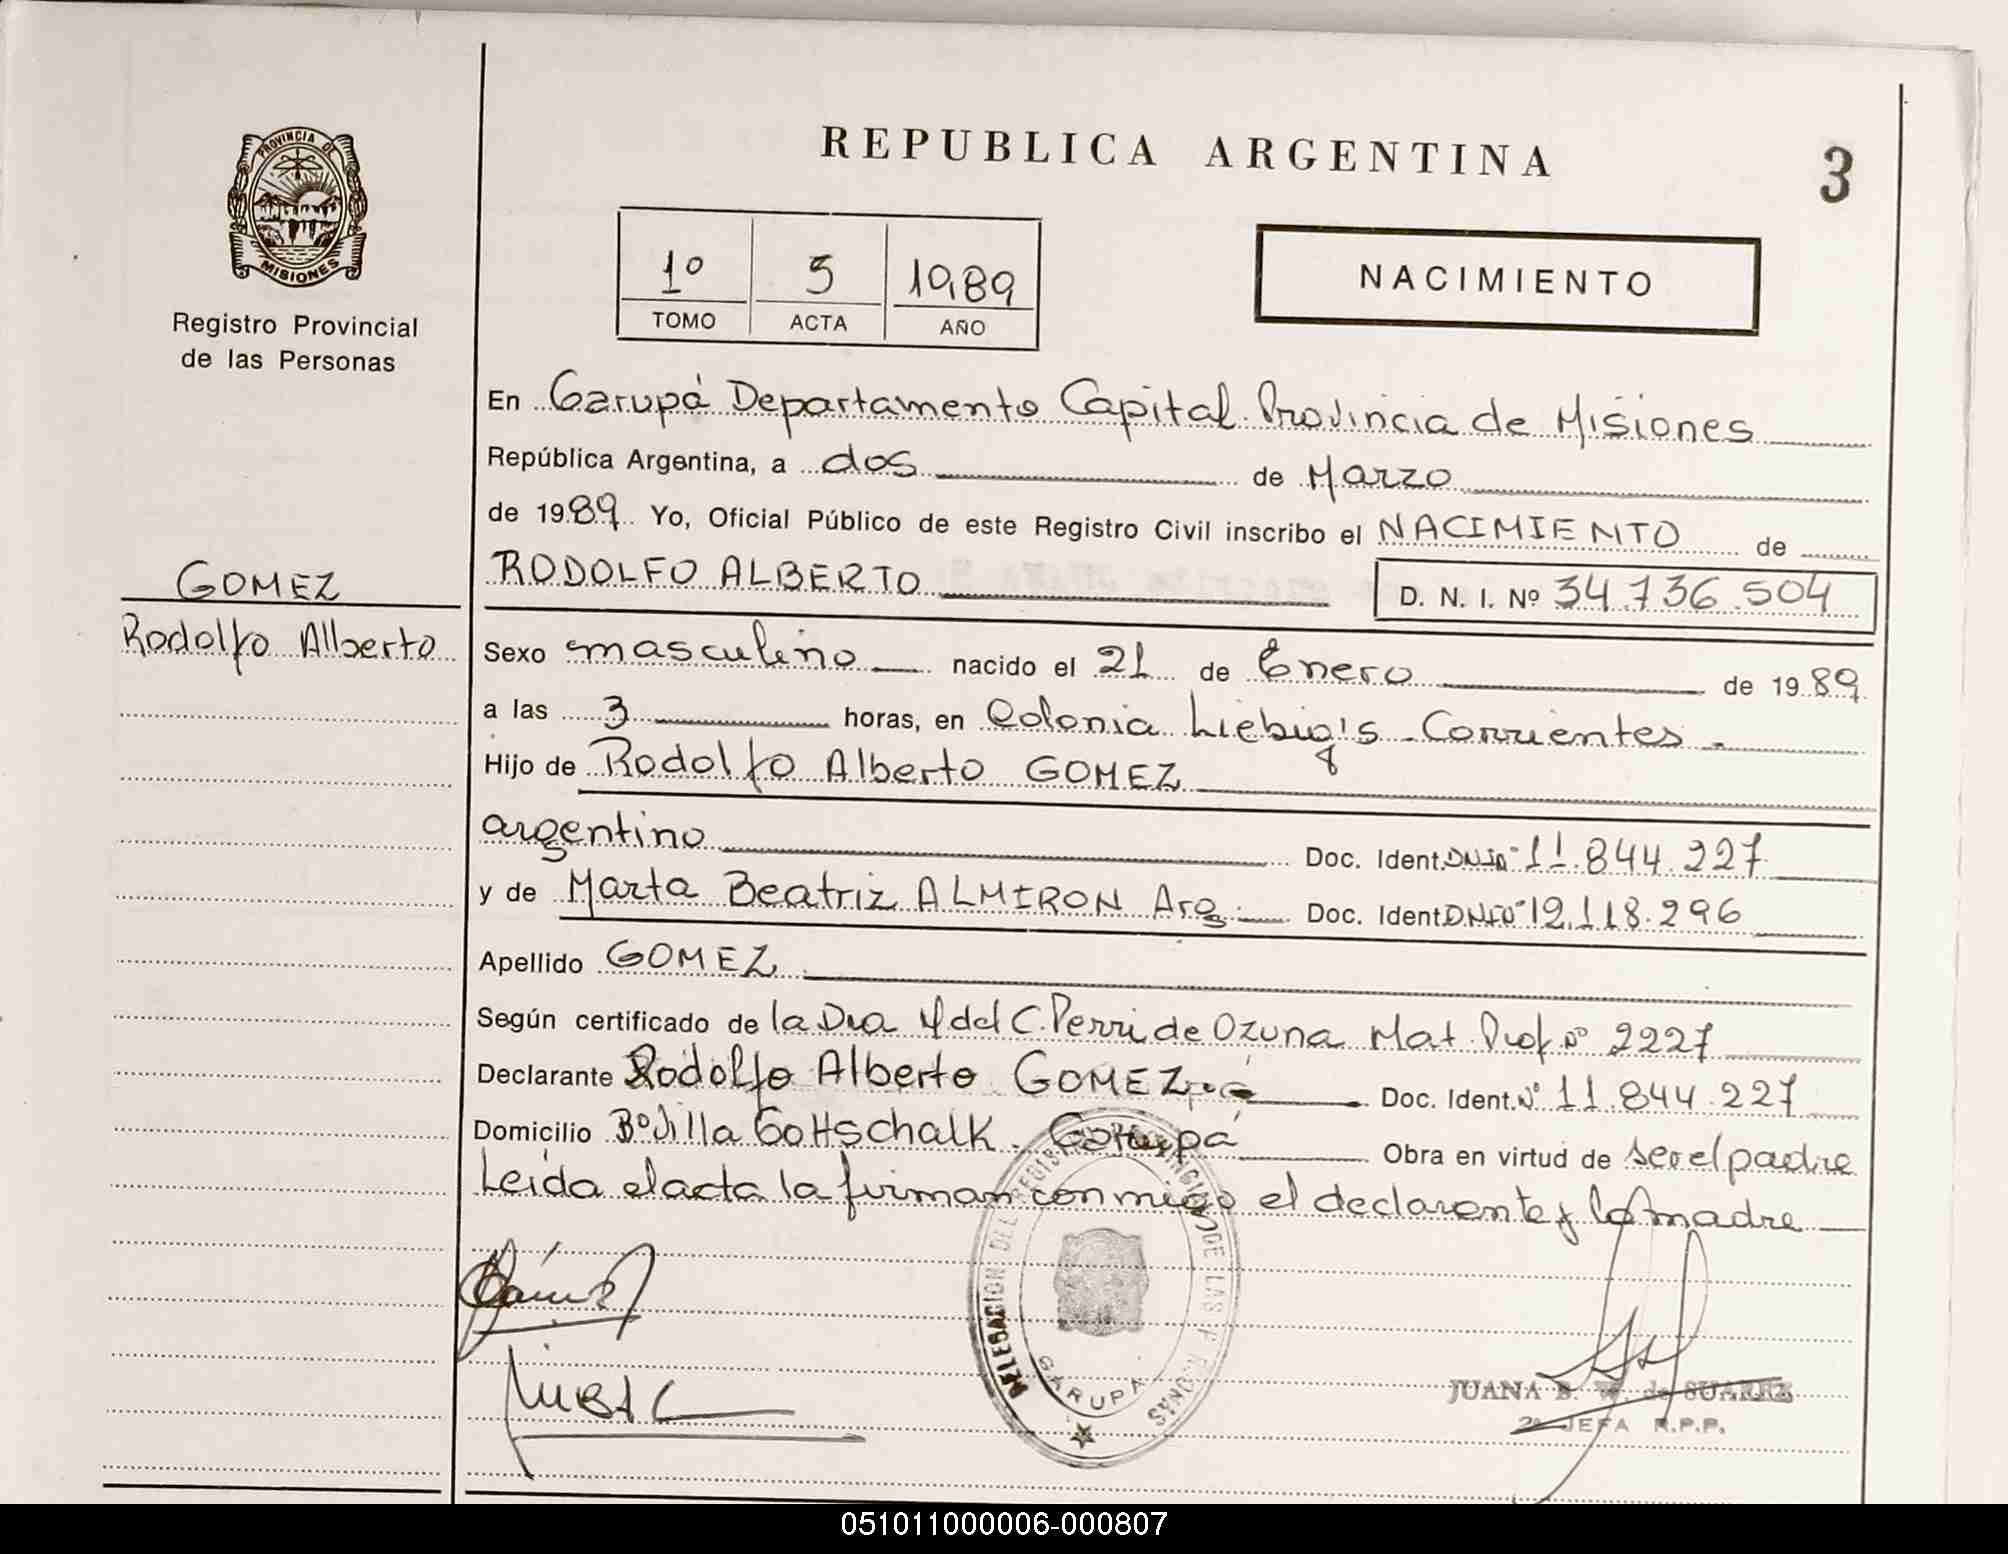 REPUBLICA ARGENTINA
3
PROVINCIA DE
MISIONES
Registro Provincial
de las Personas
1º 5 1989
TOMO ACTA AÑO
NACIMIENTO
En Garupá Departamento Capital Provincia de Misiones
República Argentina, a dos de Marzo
de 1989 Yo, Oficial Público de este Registro Civil inscribo el NACIMIENTO de
RODOLFO ALBERTO D. N. I. Nº 34.736.504
GOMEZ
Rodolfo Alberto
Sexo masculino nacido el 21 de Enero de 1989
a las 3 horas, en Colonia Liebig's - Corrientes -
Hijo de Rodolfo Alberto GOMEZ
argentino Doc. Ident. DNI Nº 11.844.227
y de Marta Beatriz ALMIRON Arg. Doc. Ident DNI Nº 12.118.296
Apellido GOMEZ
Según certificado de la Dra M del C. Perri de Ozuna Mat. Prof. Nº 2227
Declarante Rodolfo Alberto GOMEZ Doc. Ident. Nº 11.844.227
Domicilio Bº Villa Gottschalk. Garupá Obra en virtud de ser el padre
Leída el acta la firman conmigo el declarante y la madre
DELEGACION DEL REGISTRO PROVINCIAL DE LAS PERSONAS
GARUPA
JUANA B. W. de SUAREZ
2ª JEFA R.P.P.
051011000006-000807